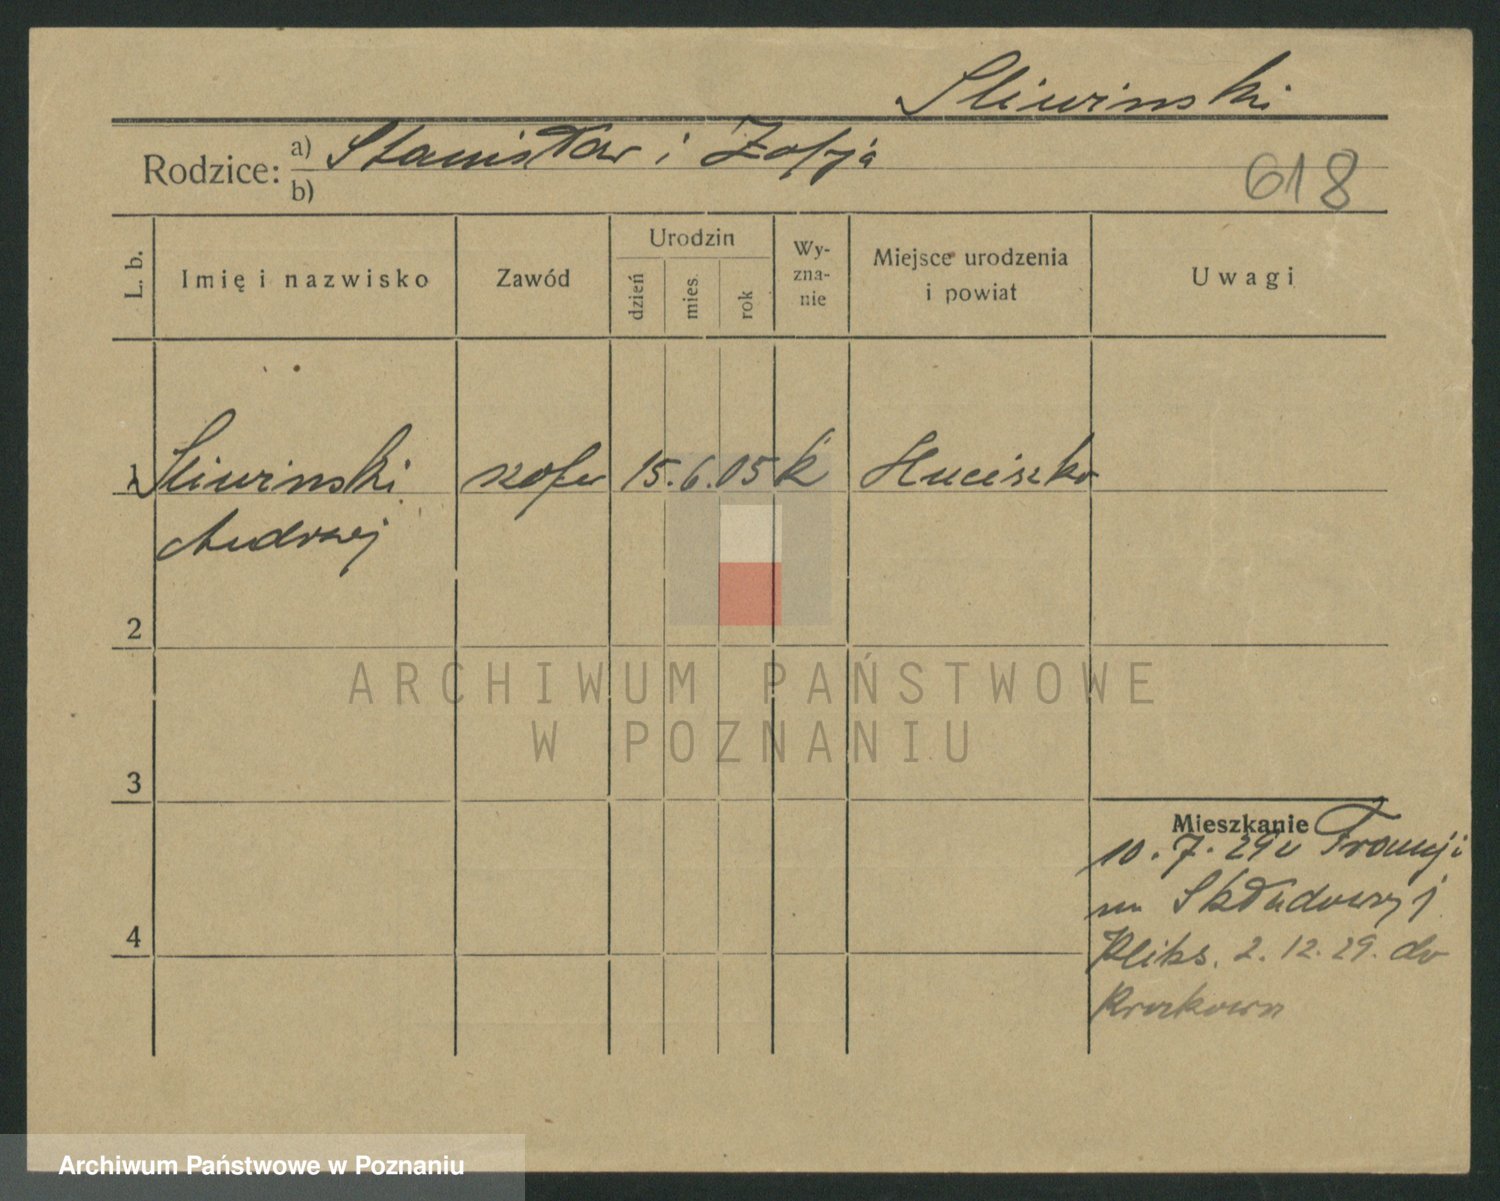 Sliwinski
Rodzice: a) Stanisław i Zofja
b)
618
L. b.
Imię i nazwisko
Zawód
Urodzin
dzień
mies.
rok
Wy-
zna-
nie
Miejsce urodzenia
i powiat
Uwagi
1 Sliwinski szofer 15.6.05 k Huciszko
Andrzej
2
3
4
Mieszkanie
10.7.29 z Francji
na Składowej 1
2.12.29. do
Krakowa
ARCHIWUM PAŃSTWOWE
W POZNANIU
Archiwum Państwowe w Poznaniu